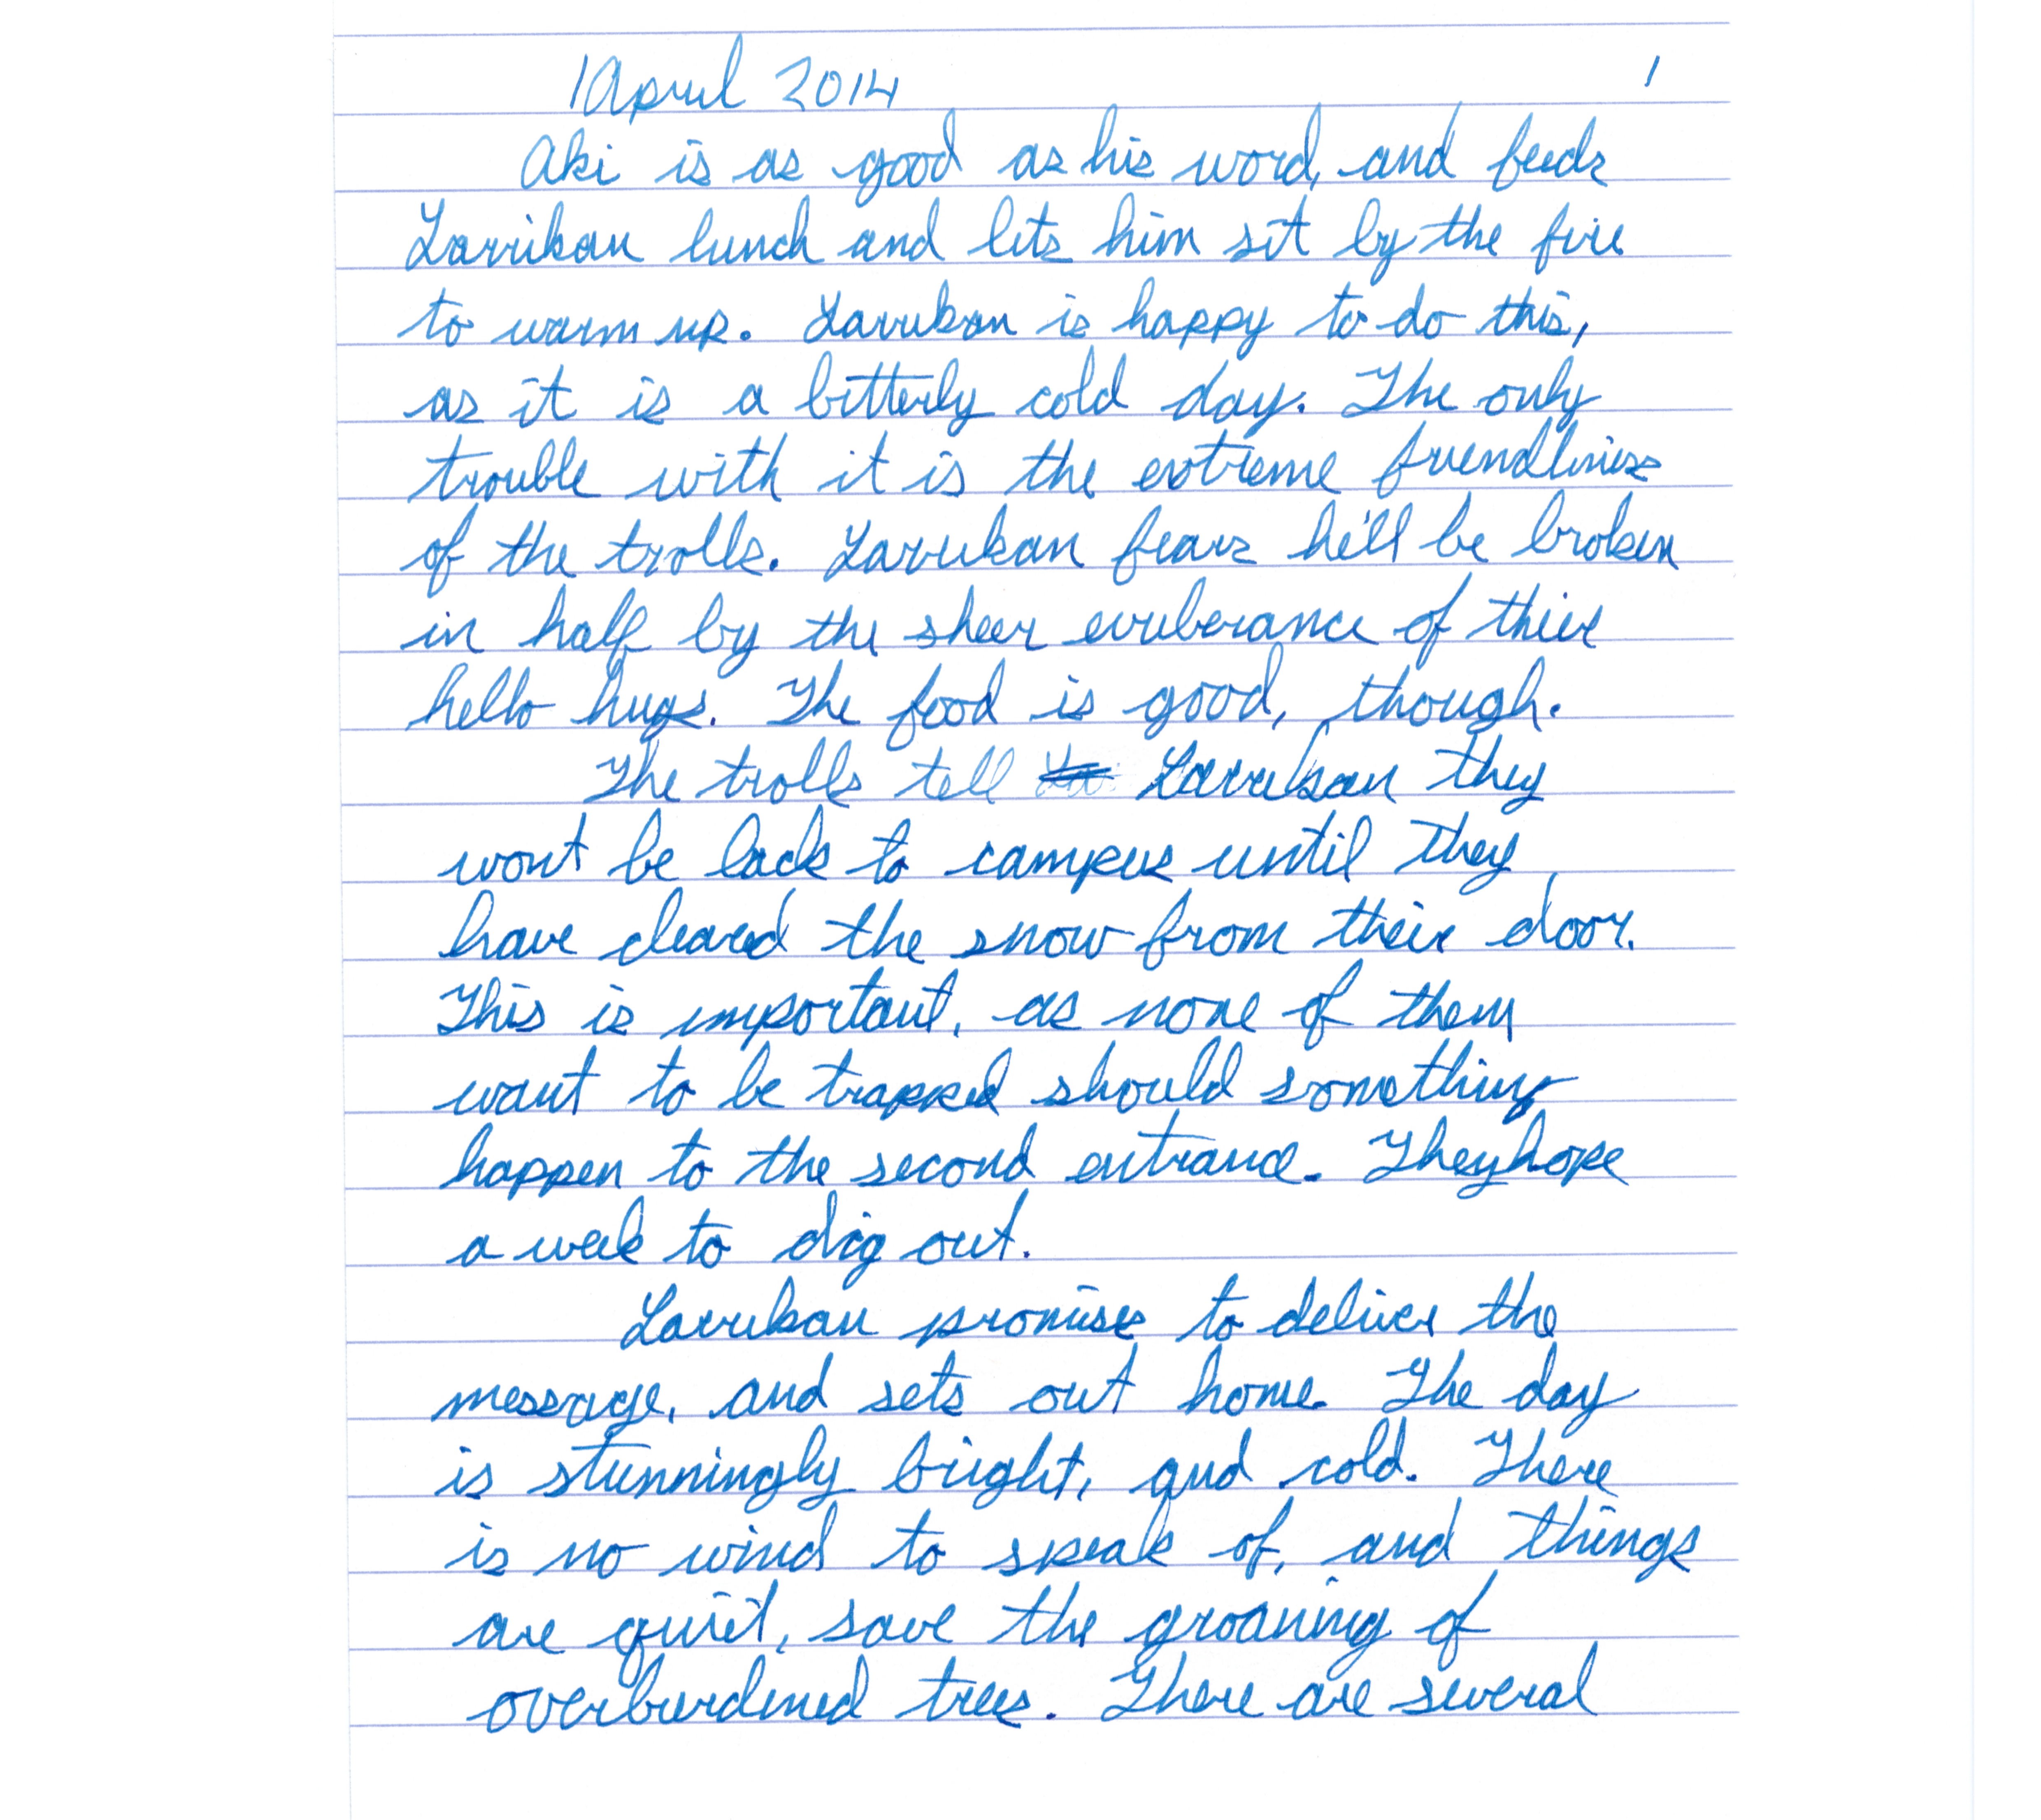 1 April 2014 1
Aki is as good as his word, and feeds
Larrikan lunch and lets him sit by the fire
to warm up. Larrikan is happy to do this,
as it is a bitterly cold day. The only
trouble with it is the extreme friendliness
of the trolls. Larrikan fears he'll be broken
in half by the sheer exuberance of their
hello hugs. The food is good, though.
The trolls tell Larrikan they
wont be back to campus until they
have cleared the snow from their door.
This is important, as none of them
want to be trapped should something
happen to the second entrance. They hope
a week to dig out.
Larrikan promises to deliver the
message, and sets out home. The day
is stunningly bright, and cold. There
is no wind to speak of, and things
are quiet, save the groaning of
overburdened trees. There are several